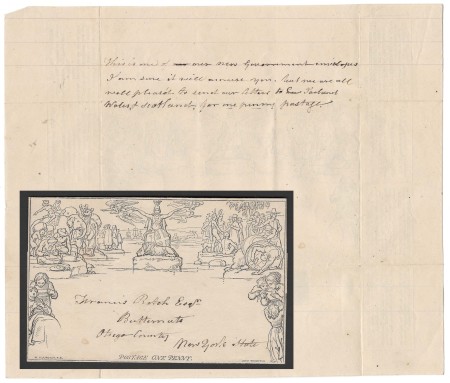 This is one of our new Government envelopes
I am sure it will amuse you, but we are all
well pleased to send our letters to
Wales & Scotland, for one penny postage.
Francis Rotch Esqr.
Butternuts
Otsego County
New York State
POSTAGE ONE PENNY.